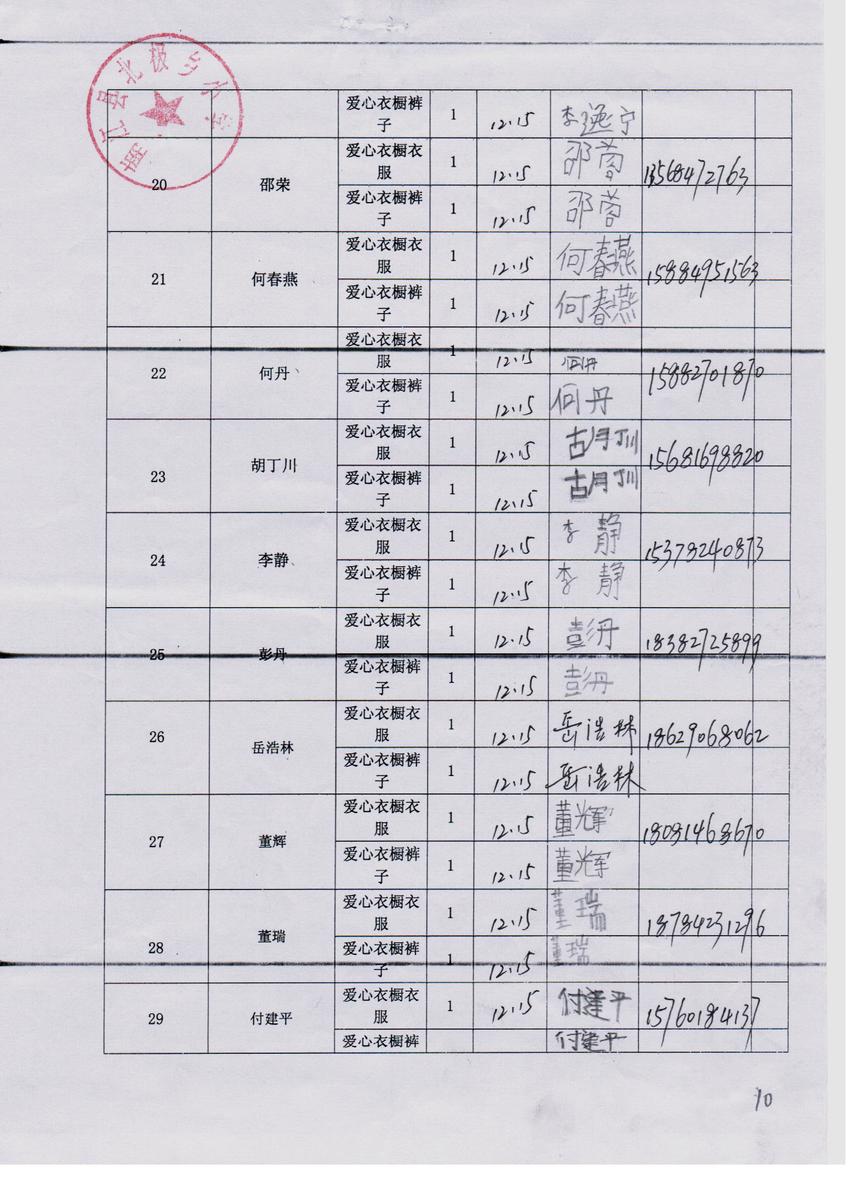 江县北极乡小学
爱心衣橱裤子 1 12.15 李逸宁
20 邵荣 爱心衣橱衣服 1 12.15 邵蓉 13568472763
爱心衣橱裤子 1 12.15 邵蓉
21 何春燕 爱心衣橱衣服 1 12.15 何春燕 15884951563
爱心衣橱裤子 1 12.15 何春燕
22 何丹 爱心衣橱衣服 1 12.15 何丹 15882701870
爱心衣橱裤子 1 12.15 何丹
23 胡丁川 爱心衣橱衣服 1 12.15 胡丁川 15681698820
爱心衣橱裤子 1 12.15 胡丁川
24 李静 爱心衣橱衣服 1 12.15 李静 15378240873
爱心衣橱裤子 1 12.15 李静
25 彭丹 爱心衣橱衣服 1 12.15 彭丹 18382725899
爱心衣橱裤子 1 12.15 彭丹
26 岳浩林 爱心衣橱衣服 1 12.15 岳浩林 18629068062
爱心衣橱裤子 1 12.15 岳浩林
27 董辉 爱心衣橱衣服 1 12.15 董辉 18081468670
爱心衣橱裤子 1 12.15 董辉
28 董瑞 爱心衣橱衣服 1 12.15 董瑞 18784231296
爱心衣橱裤子 1 12.15 董瑞
29 付建平 爱心衣橱衣服 1 12.15 付建平 15760184137
爱心衣橱裤 付建平
10